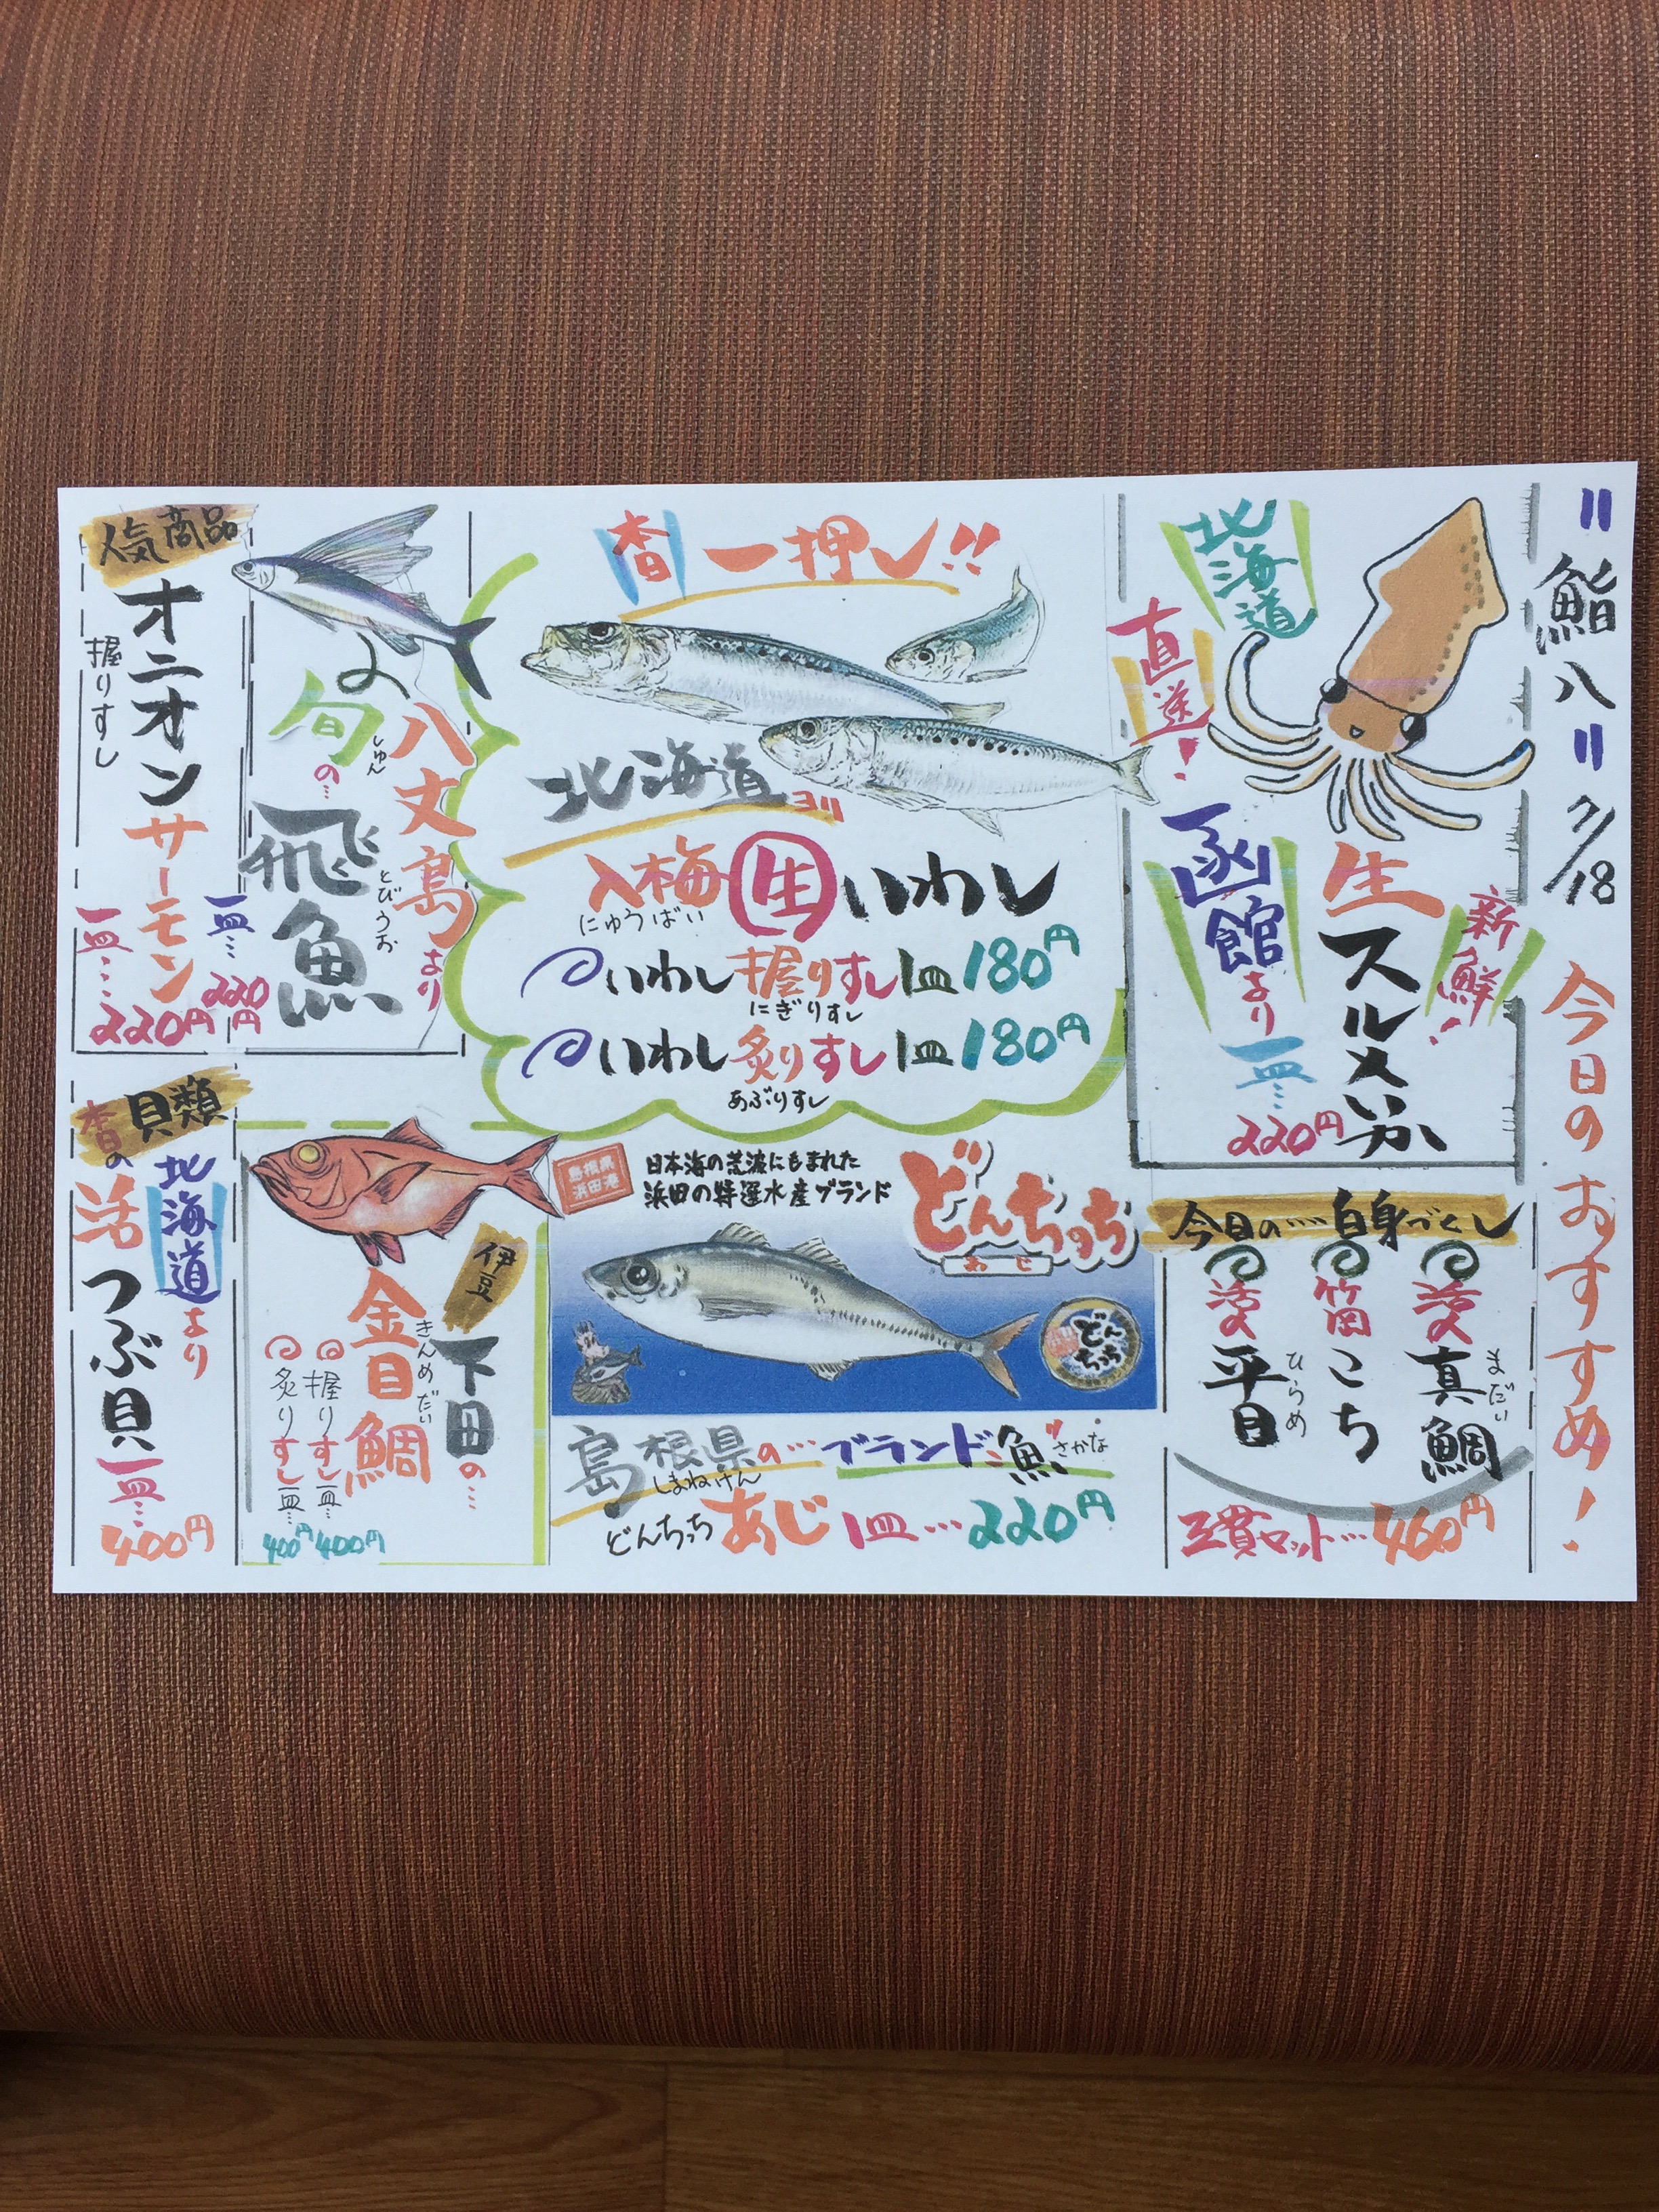 〃鮨八〃 7/18
今日のおすすめ!
北海道
直送!
函館より
生スルメいか
新鮮!
一皿… 220円
今日の…白身づくし
活〆真鯛
まだい
笛こち
活〆平目
ひらめ
三貫セット… 460円
本日一押し!!
北海道ヨリ
入梅生いわし
にゅうばい
いわし握りすし1皿180円
にぎりすし
いわし炙りすし1皿180円
あぶりすし
島根県
浜田港
日本海の荒波にもまれた
浜田の特選水産ブランド
どんちっち
あじ
どんちっち
島根県の…ブランド〃魚〃
しまねけん
さかな
どんちっちあじ1皿…220円
八丈島より
旬の…
しゅん
飛魚
とびうお
一皿… 220円
人気商品
オニオンサーモン
握りすし
一皿… 220円
伊豆
下田の…
金目鯛
きんめだい
握りすし一皿… 400円
炙りすし一皿… 400円
本日の貝類
北海道より
活つぶ貝
一皿… 400円